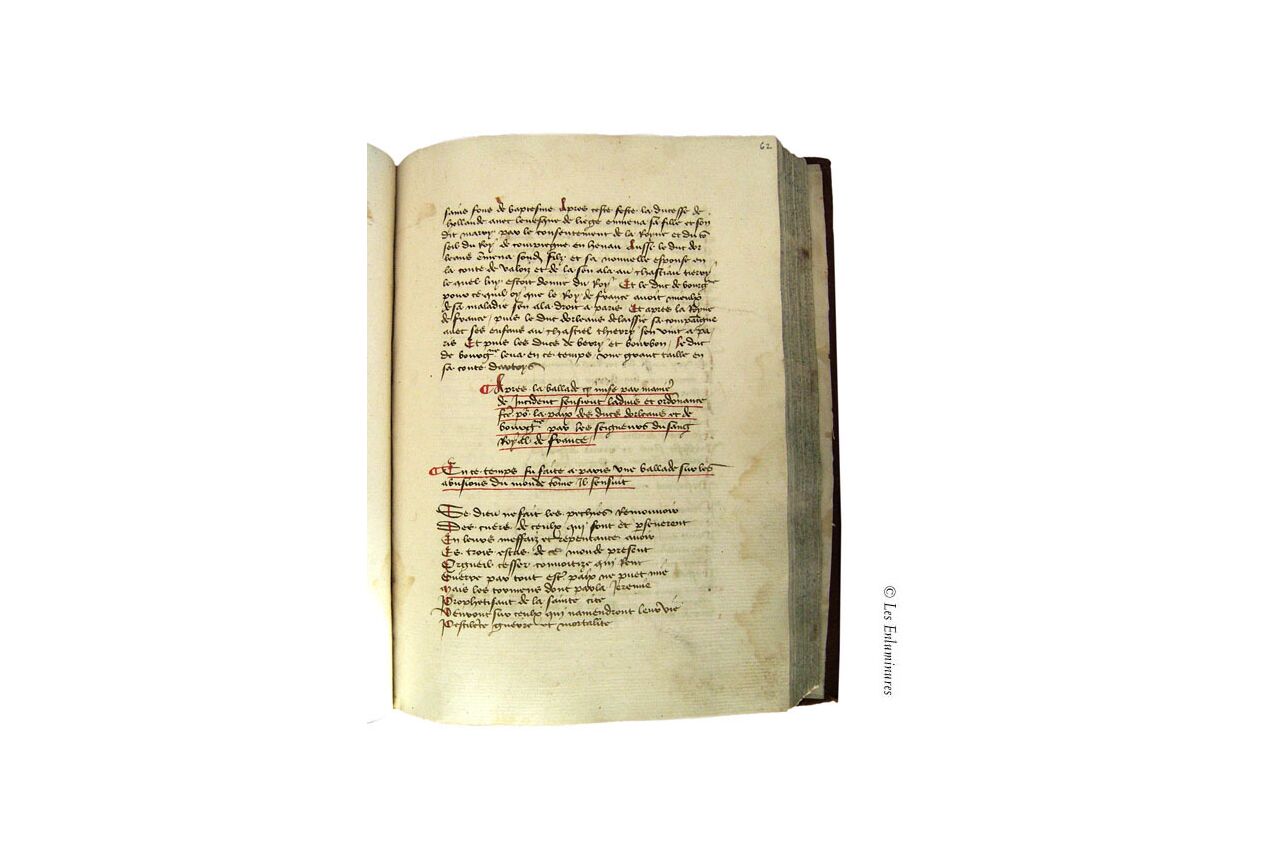 62
sains fons de baptesme Apres ceste feste la ducesse de
hollande avec levesque de liege enmena sa fille et son
dit mary par le consentement de la Royne et du
seil du Roy de compiegne en henau Aussi le duc dor
leans enmena son filz et sa nouvelle espouse en
la conte de valois et de la sen ala au chastiau tierry
le quel luy estoit donne du Roy Et le duc de bourgne
pour ce quil oy que le Roy de france avoit mieulx
de sa maladie sen ala droit a paris Et apres la Royne
de france puis le duc dorleans delaissie sa compaigne
avec ses enfans au chastiel thierry sen vint a pa
ris Et puis les ducs de berry et bourbon le duc
de bourgne leva en ce temps une grant taille en
sa conte dartois
Apres la ballade cy mise par maniere
de Incident sensieut ladvis et ordonnance
fce po la paix des ducs dorleans et de
bourgne par les seigneurs du sang
Royal de france
En ce temps fu faite a paris une ballade sur les
abusions du monde come Il sensuit
Se dieu ne fait les pechies
Des cuers de ceulx qui sont et perseveront
En leurs meffaiz et repentance avoir
Les trois estas de ce monde present
Orgueil cesser convoitize qui
Guerre par tout est paix ne puet mie
Mais les tormens dont parla Jeremie
Prophetisant de la sainte cite
Venront sur ceulx qui namendront leur vie
Pestilete guerre et mortalite
© Les Enluminures